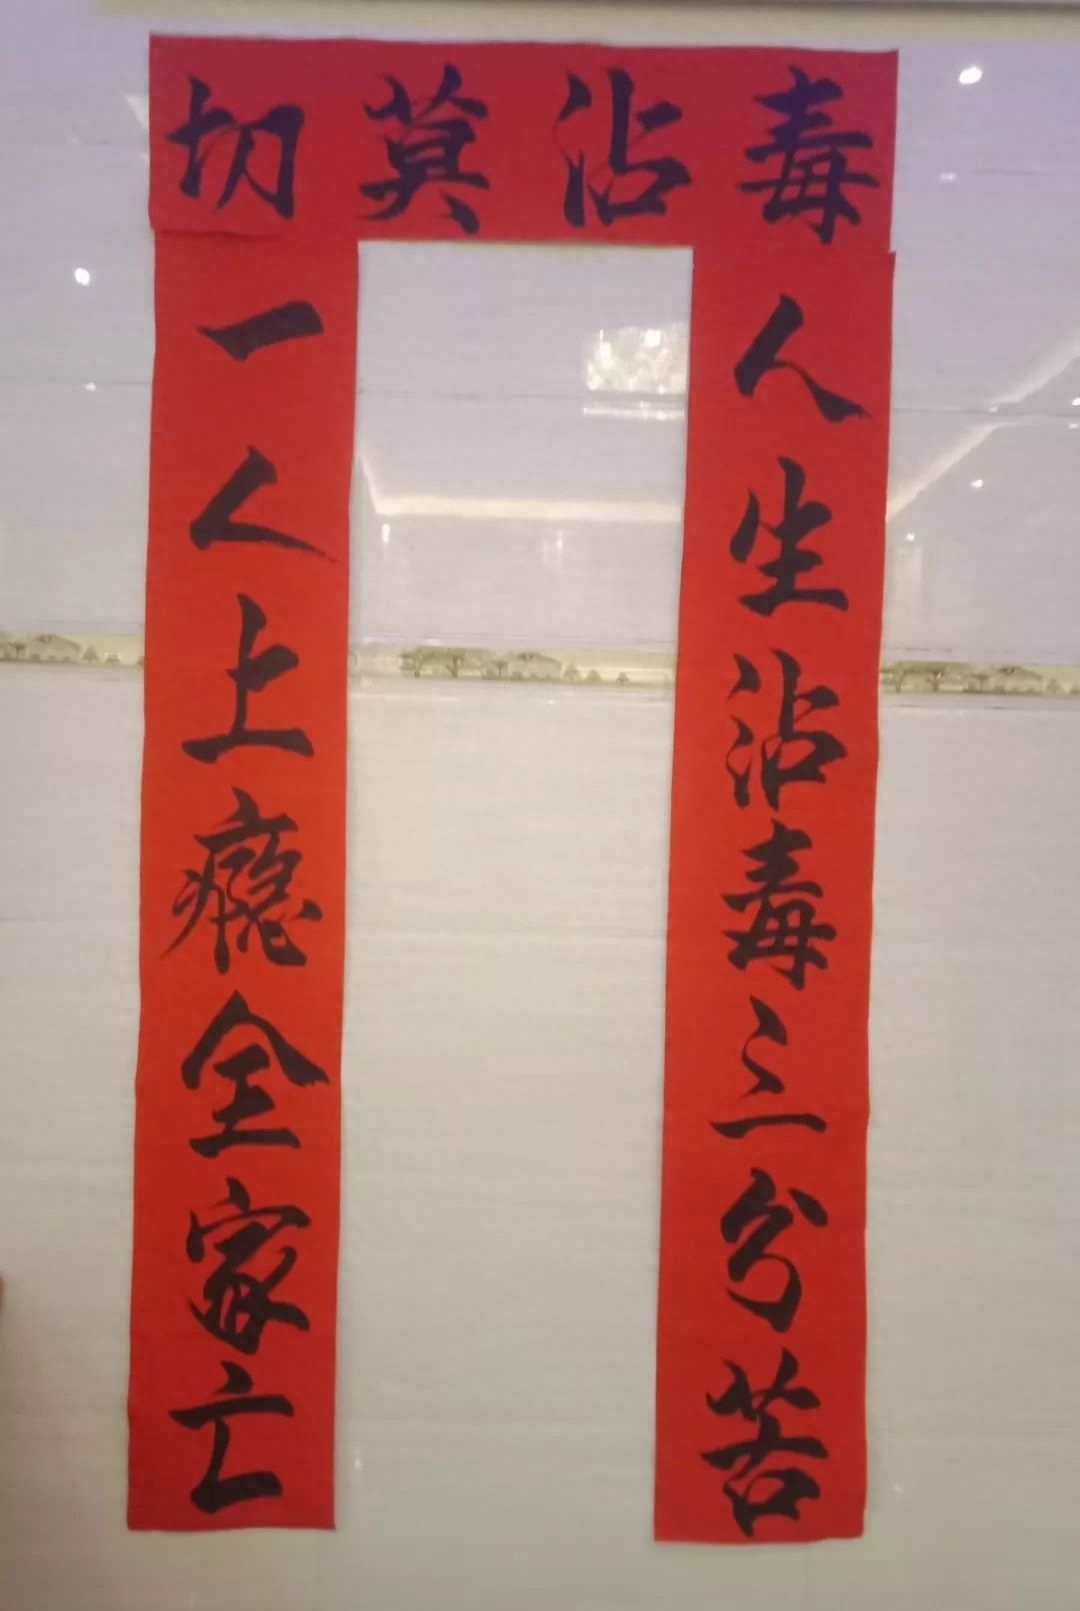 切莫沾毒
人生沾毒三分苦
一人上瘾全家亡